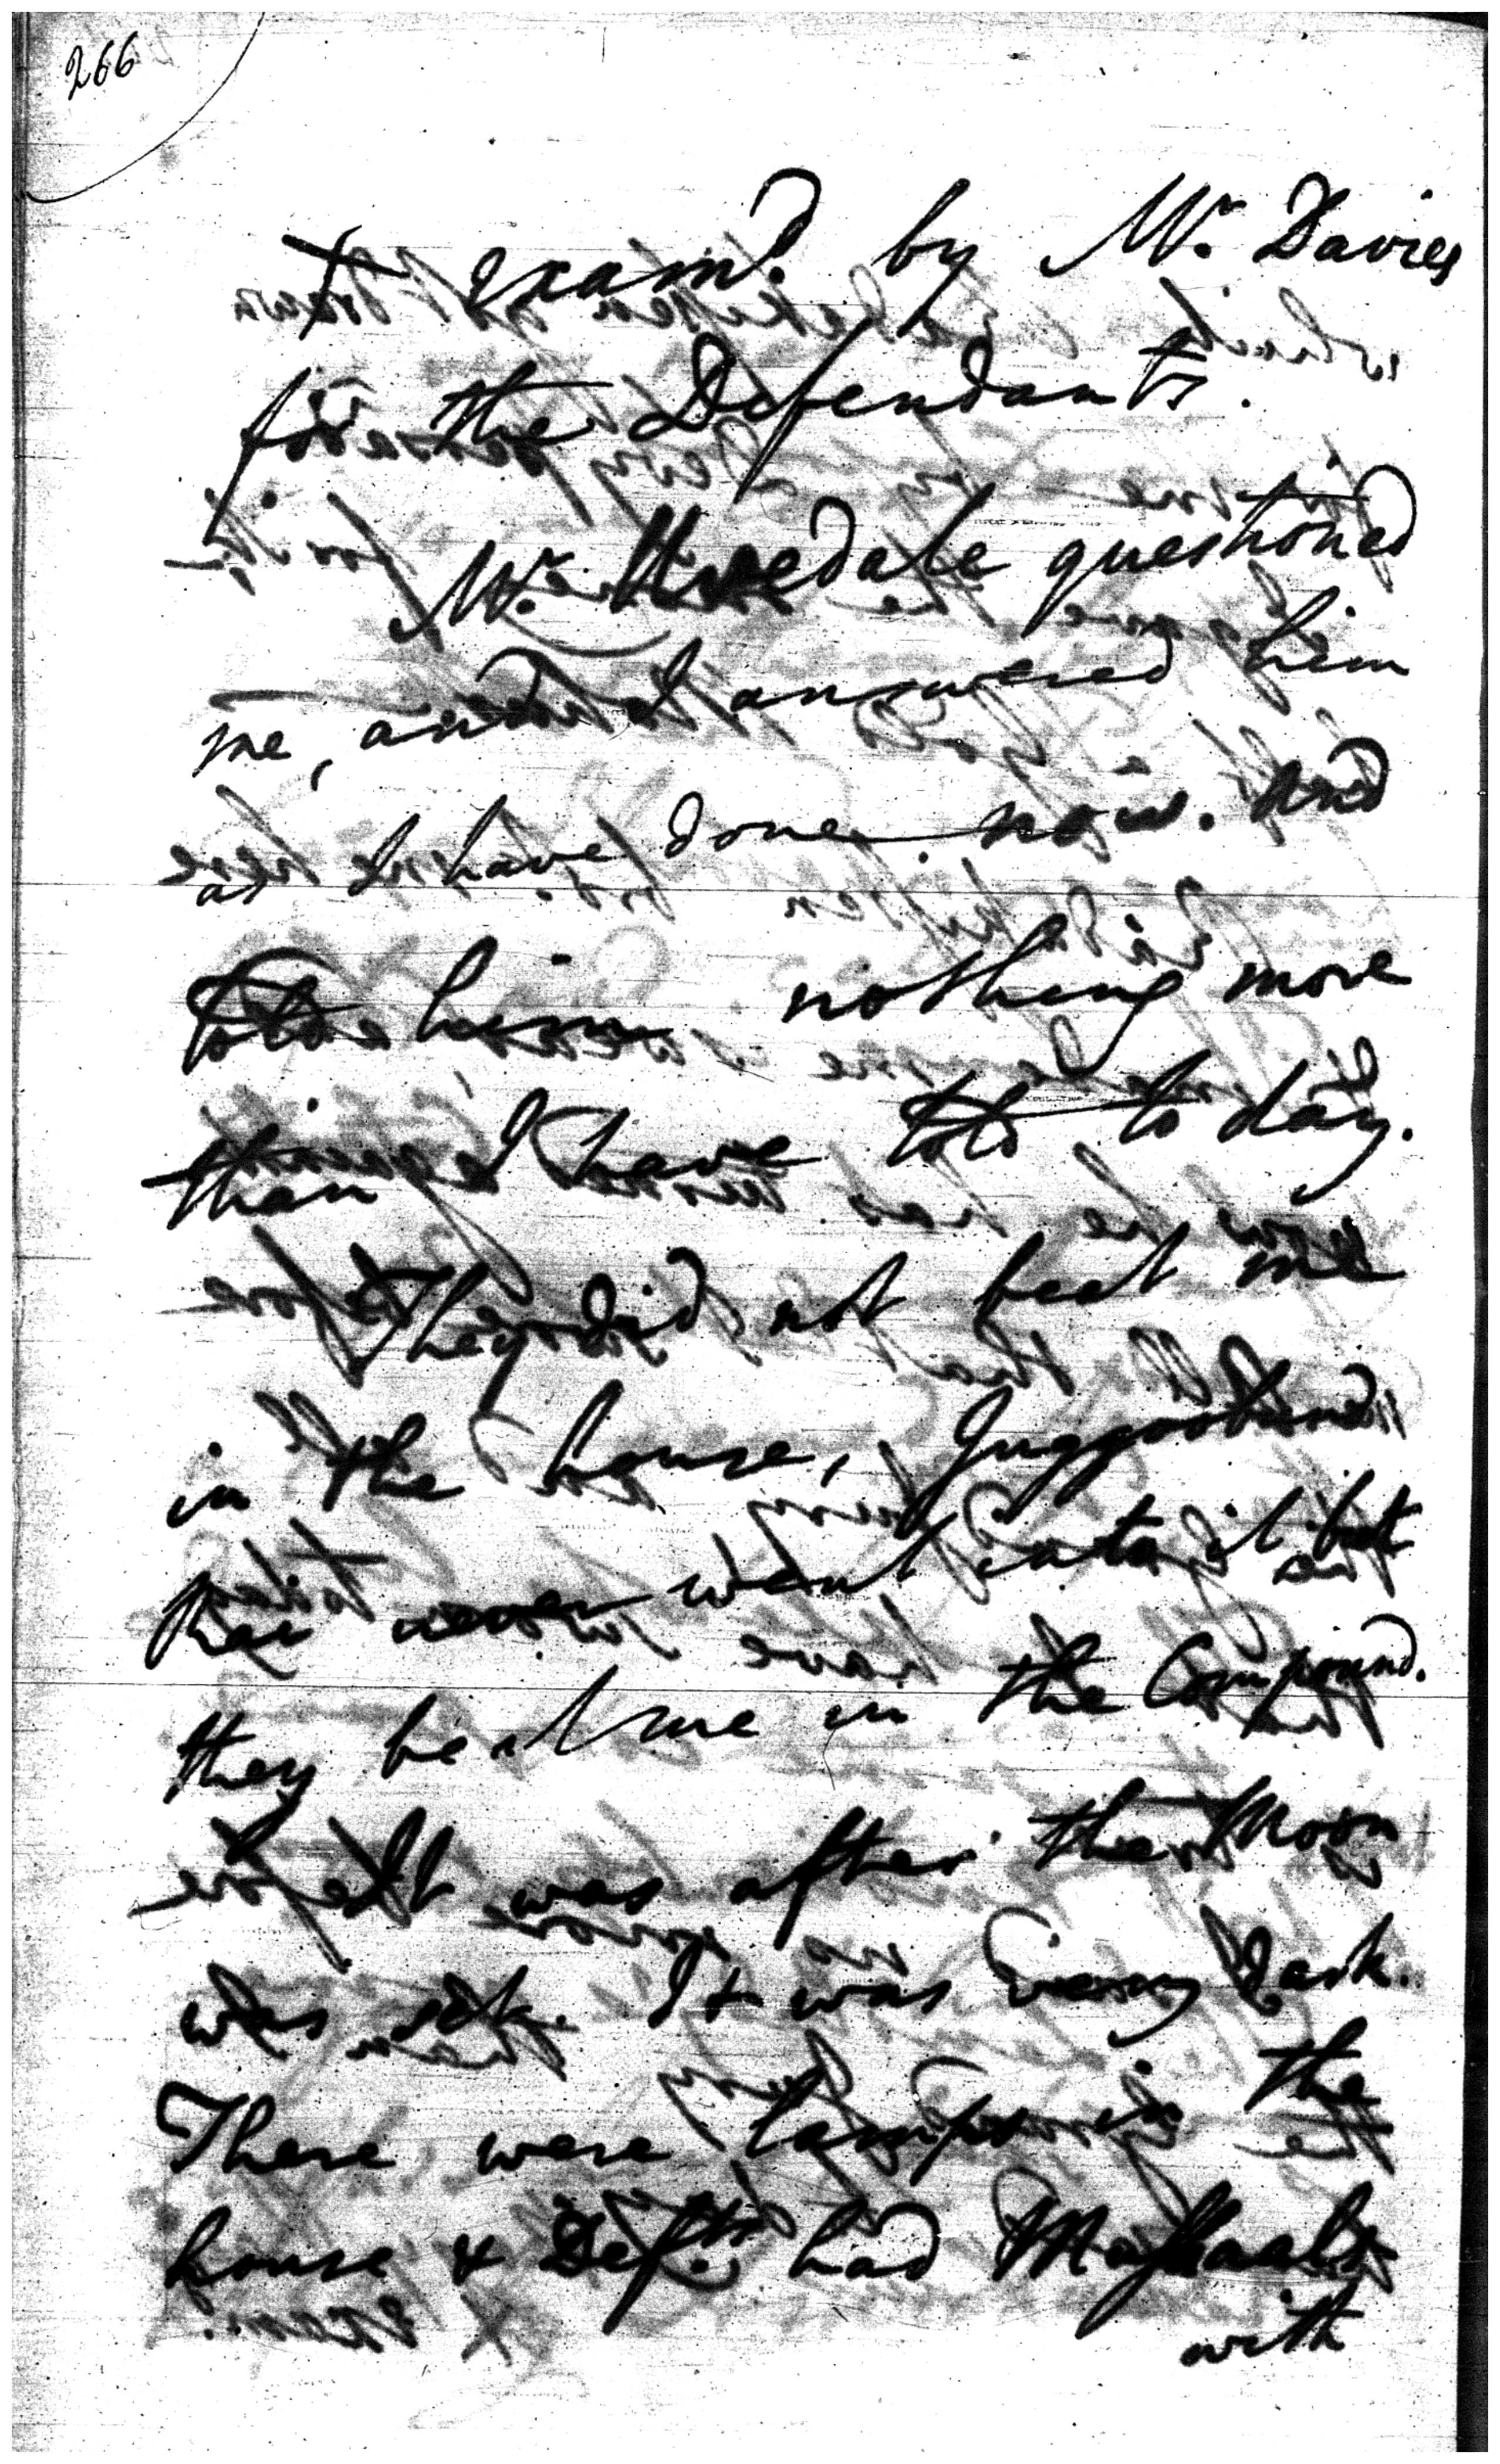 266
X exam.d by Mr. Davies
for the Defendants.
Mr. questioned
me, and I answered him
as I have done now. And
told him nothing more
than I have told to day.
They did not beat me
in the house,
never went into it but
they beat me in the Compound.
It was after the Moon
was set. It was very dark.
There were lamps in the
house & Defts. had Mussaals
with